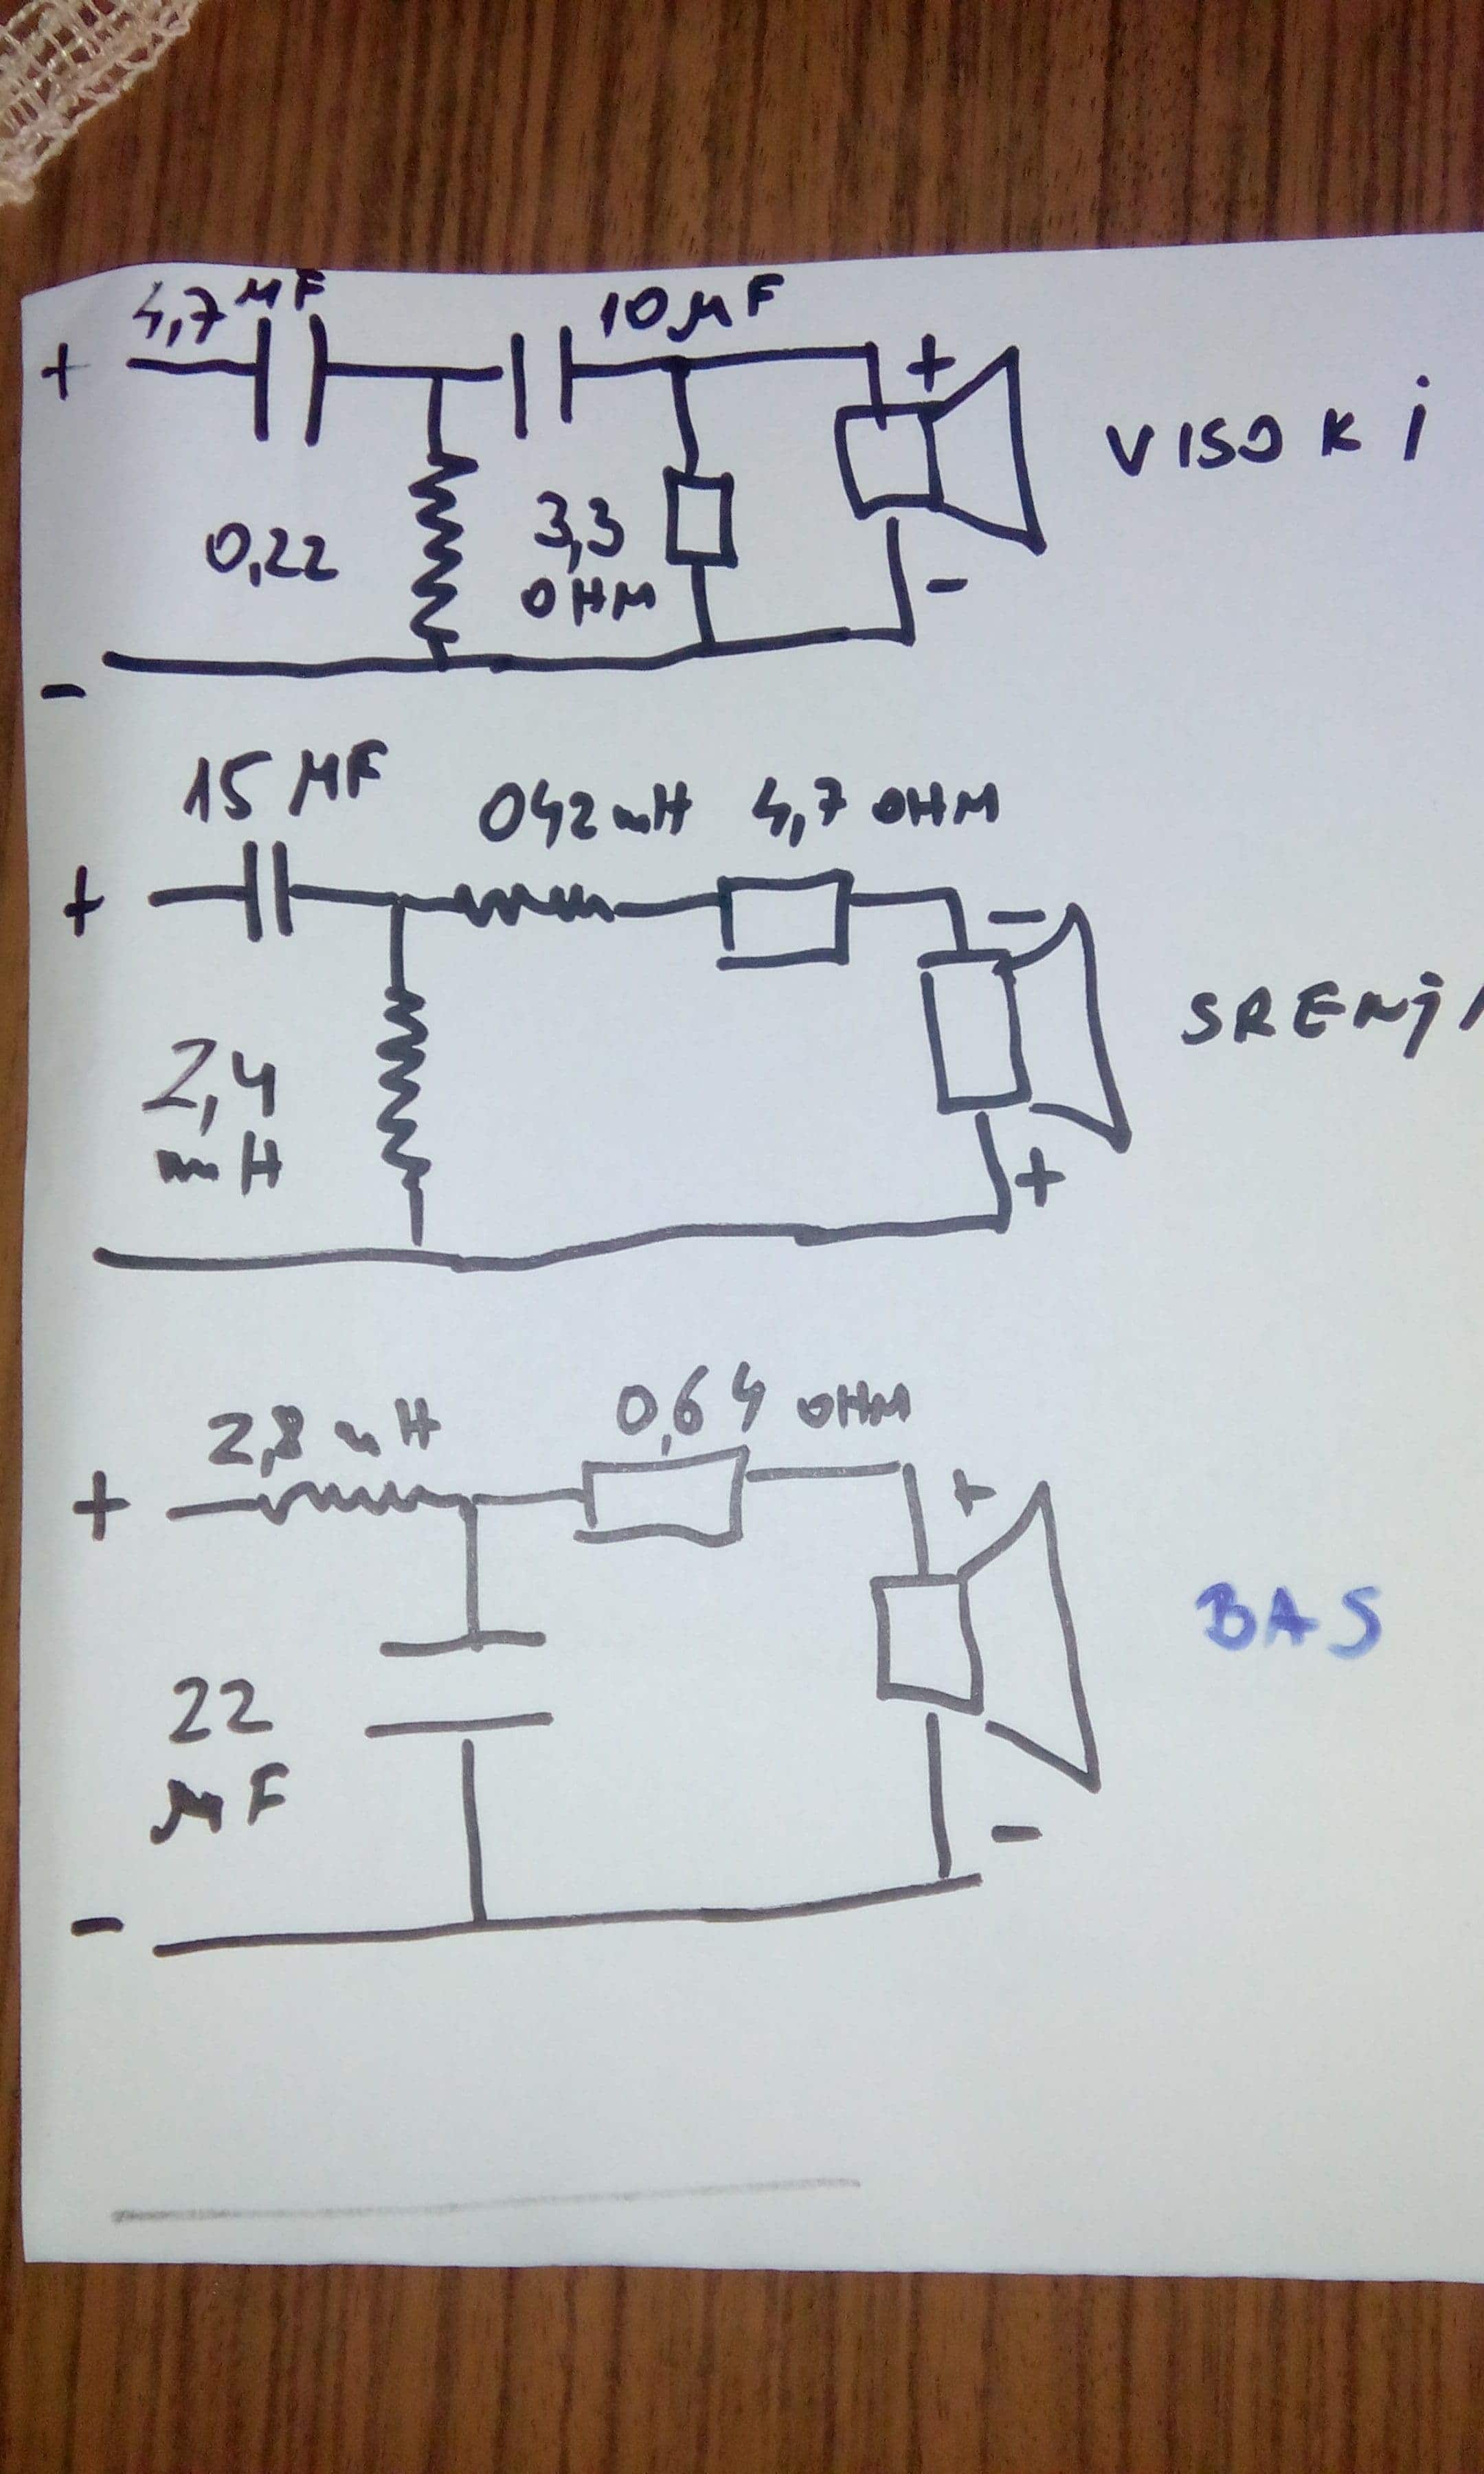 4,7 µF 10 µF
+ +
VISOKI
0,22 3,3
OHM
-
-
15 µF
042 mH 4,7 OHM
+ -
SRENJI
2,4
mH
+
2,8 mH 0,64 OHM
+ +
BAS
22
µF
-
-